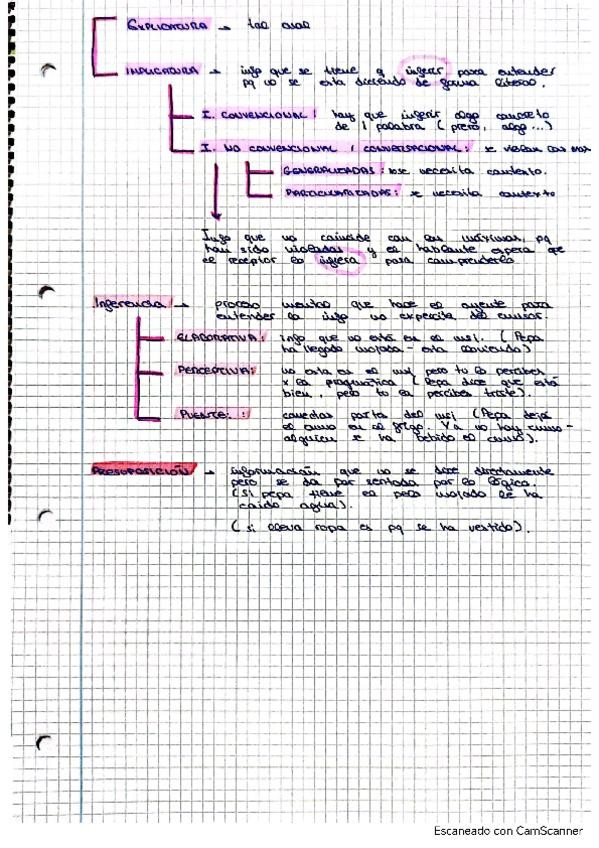 EXPLICATURA → tal cual
IMPLICATURA → info que se tiene q inferir para entender
pq no se está diciendo de forma literal.
I. CONVENCIONAL: hay que inferir algo concreto
de 1 palabra (pero, algo...)
I. NO CONVENCIONAL / CONVERSACIONAL: se violan las max
GENERALIZADAS: no se necesita contexto.
PARTICULARIZADAS: se necesita contexto
Info que no coincide con las máximas, pq
han sido violadas y el hablante espera que
el receptor lo infiera para comprenderlo
Inferencia → proceso mental que hace el oyente para
entender la info no explícita del emisor.
ELABORATIVA: info que no está en el msj. (Pepa
ha llegado mojada - está lloviendo)
PERCEPTIVA: no está en el msj pero tú lo percibes
x la pragmática (Pepa dice que está
bien, pero tú la percibes triste).
PUENTE: conectas parte del msj (Pepa dejó
el zumo en el frigo. Ya no hay zumo -
alguien se ha bebido el zumo).
PRESUPOSICIÓN → información que no se dice directamente
pero se da por sentada por la lógica.
(Si pepa tiene el pelo mojado le ha
caído agua).
(si lleva ropa es pq se ha vestido).
Escaneado con CamScanner